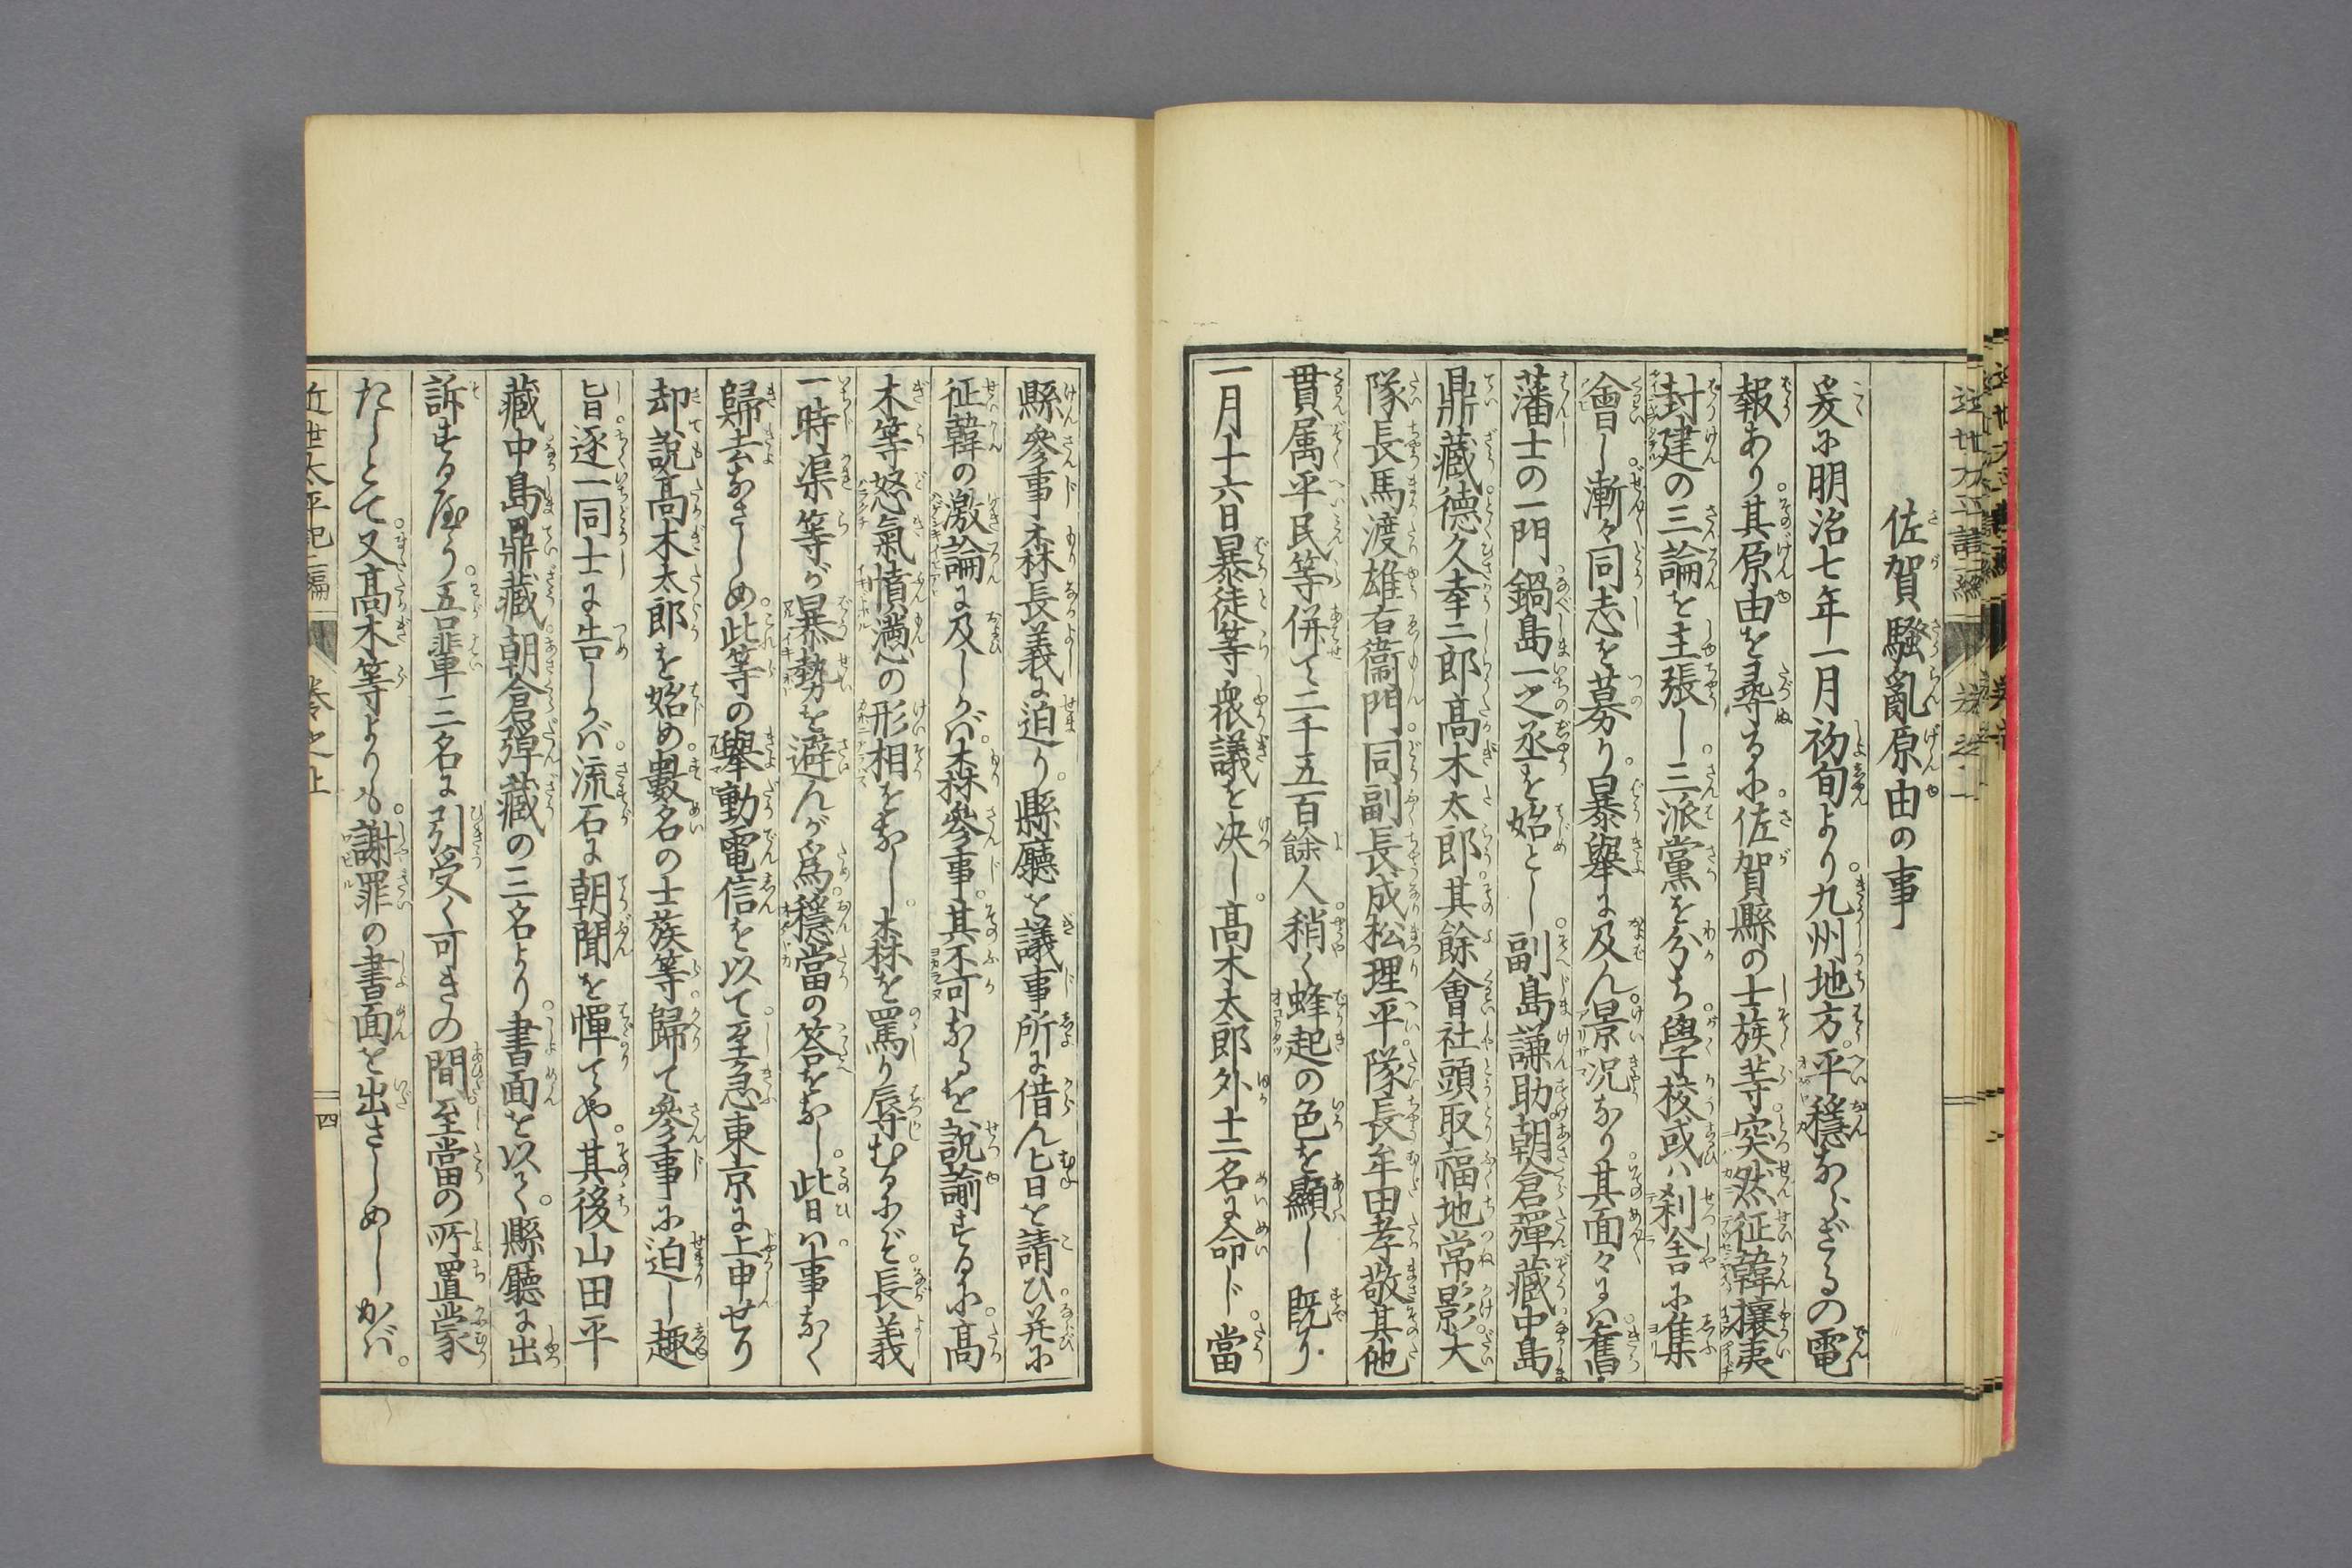 佐賀騷亂原由の事
爰に明治七年一月初旬より九州地方平穩ならざるの電
報あり其原由を尋るに佐賀縣の士族等突然征韓攘夷
封建の三論を主張し三派黨を分ち學校或ハ刹舎に集
會し漸々同志を募り暴擧に及ん景况なり其面々にハ舊
藩士の一門鍋島一之丞を始とし副島謙助朝倉彈藏中島
鼎藏德久幸二郎高木太郎其餘會社頭取福地常影大
隊長馬渡雄右衞門同副長成松理平隊長牟田孝敬其他
貫属平民等併て二千五百餘人稍く蜂起の色を顯し既り
一月十六日暴徒等衆議を决し高木太郎外十二名に命じ當
縣參事森長義に迫り縣廳を議事所に借ん㕝を請ひ并に
征韓の激論に及しかバ森參事其不可なるを說諭するに高
木等怒氣憤懣の形相をなし森を罵り辱むるにぞ長義
一時渠等が暴勢を避んが爲穩當の答をなし此日ハ事なく
歸去なさしめ此等の擧動電信を以て至急東京に上申せり
却說高木太郎を始め數名の士族等歸て參事に迫し趣
旨逐一同士に告しかバ流石に朝聞を憚てや其後山田平
藏中島鼎藏朝倉彈藏の三名より書面を以て縣廳に出
訴する旨う吾輩三名に引受く可きの間至當の所置蒙
たしとて又高木等よりも謝罪の書面を出さしめしかバ
近世太平記二編
卷之上
四